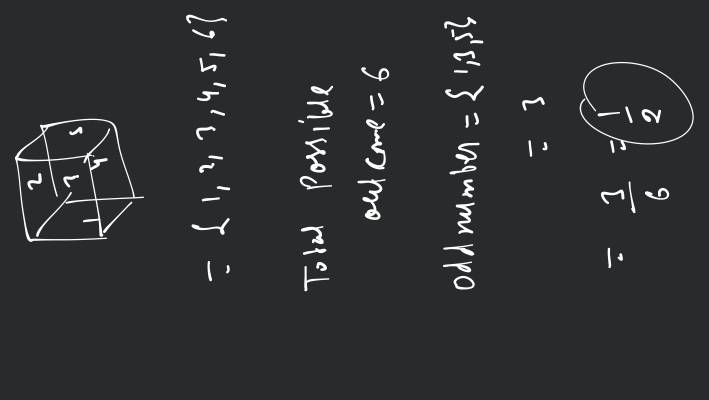 5
2 3 4
1
= { 1, 2, 3, 4, 5, 6}
Total Possible
outcome = 6
odd number = { 1,3,5}
= 3
= 3/6 = 1/2